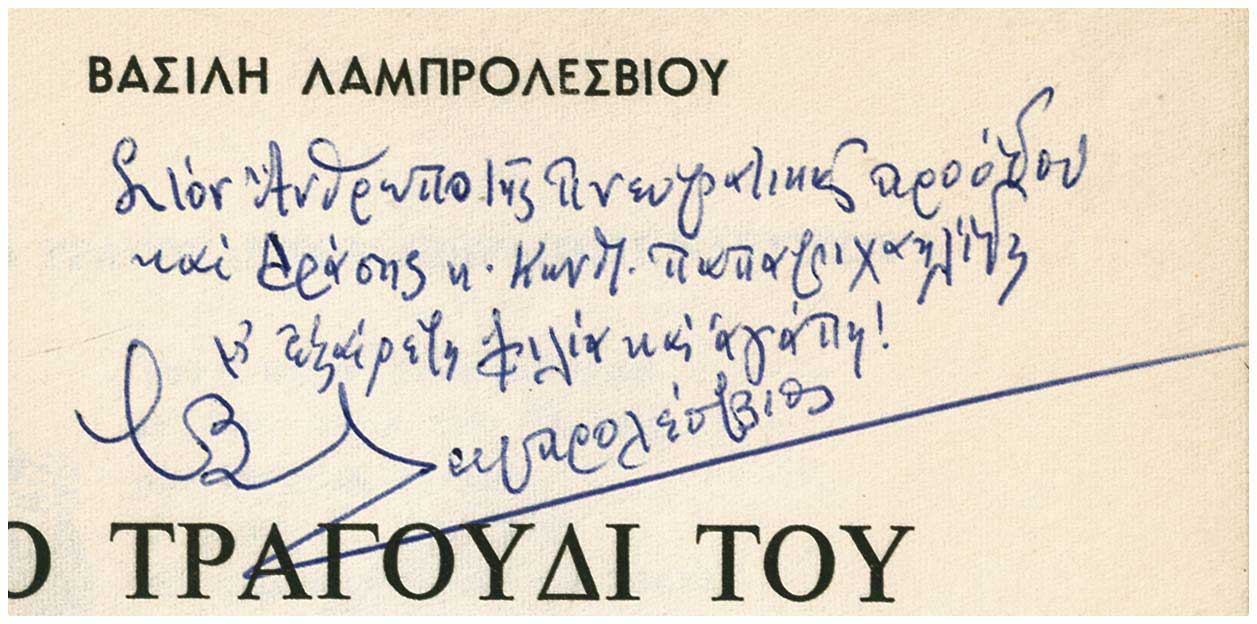 ΒΑΣΙΛΗ ΛΑΜΠΡΟΛΕΣΒΙΟΥ
Στόν Ἄνθρωπο τῆς πνευματικῆς προόδου
καί Δράσης κ. Κωνστ. Παπαμιχαηλίδη
μ' ἐξαίρετη φιλία καί ἀγάπη!
Β Λαμπρολέσβιος
Ο ΤΡΑΓΟΥΔΙ ΤΟΥ